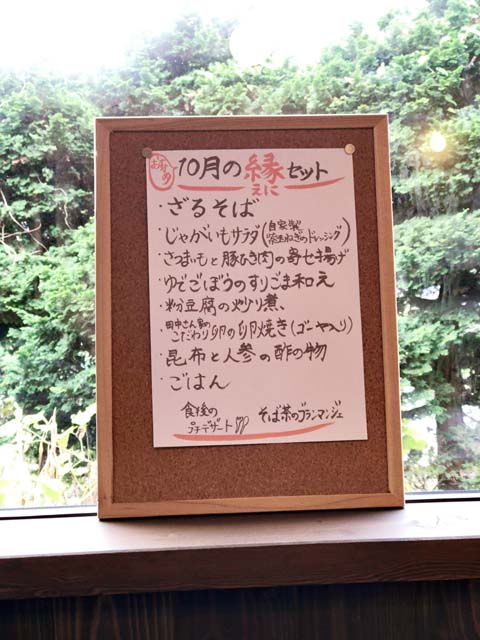 おすすめ
10月の縁セット
えに
・ざるそば
・じゃがいもサラダ(自家製玉ねぎのドレッシング)
・さつまいもと豚ひき肉の寄せ揚げ
・ゆでごぼうのすりごま和え
・粉豆腐の炒り煮、
・田中さん家のこだわり卵の卵焼き(ゴーヤ入り)
・昆布と人参の酢の物
・ごはん
食後のプチデザート そば茶のブランマンジェ